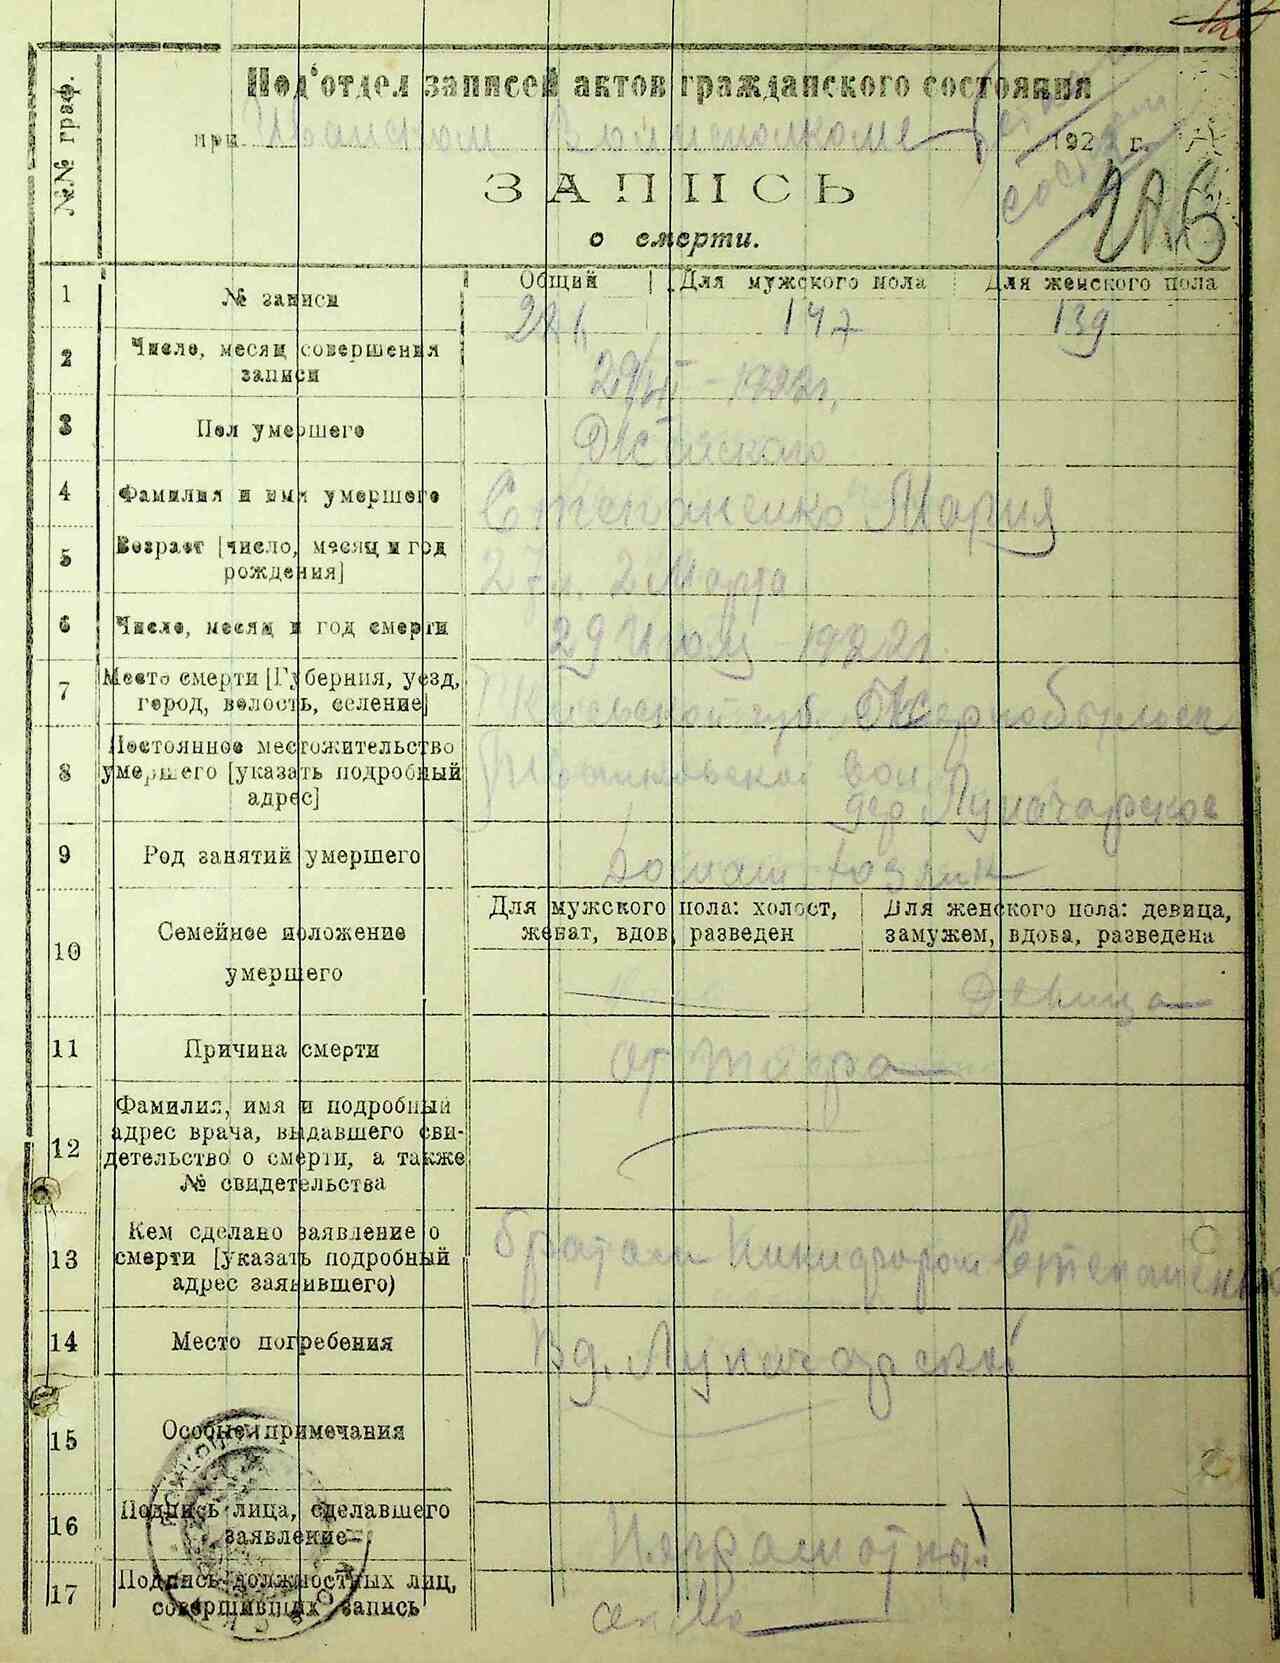 №№ граф.
Под'отдел записей актов гражданского состояния
при Волисполкоме 192 г.
ЗАПИСЬ
о смерти.
1 № записи Общий Для мужского пола Для женского пола
147 139
2 Число, месяц совершения
записи
29/VI - 1922г.
3 Пол умершего Женского
4 Фамилия и имя умершего Степаненко Мария
5 Возраст [число, месяц и год
рождения]
27л. 2 Марта
6 Число, месяц и год смерти 29 1922г.
7 Место смерти [Губерния, уезд,
город, волость, селение]
Киевской губ.
8 Постоянное местожительство
умершего [указать подробный
адрес]
вол.
дер. Луначарское
9 Род занятий умершего Домаш.
10 Семейное положение
умершего
Для мужского пола: холост,
женат, вдов, разведен
Для женского пола: девица,
замужем, вдова, разведена
Девица
11 Причина смерти от
12 Фамилия, имя и подробный
адрес врача, выдавшего сви-
детельство о смерти, а также
№ свидетельства
13 Кем сделано заявление о
смерти [указать подробный
адрес заявившего)
братом Никифором Степаненко
14 Место погребения В д. Луначарской
15 Особые примечания
16 Подпись лица, сделавшего
заявление
Неграмотный
17 Подпись должностных лиц,
совершивших запись